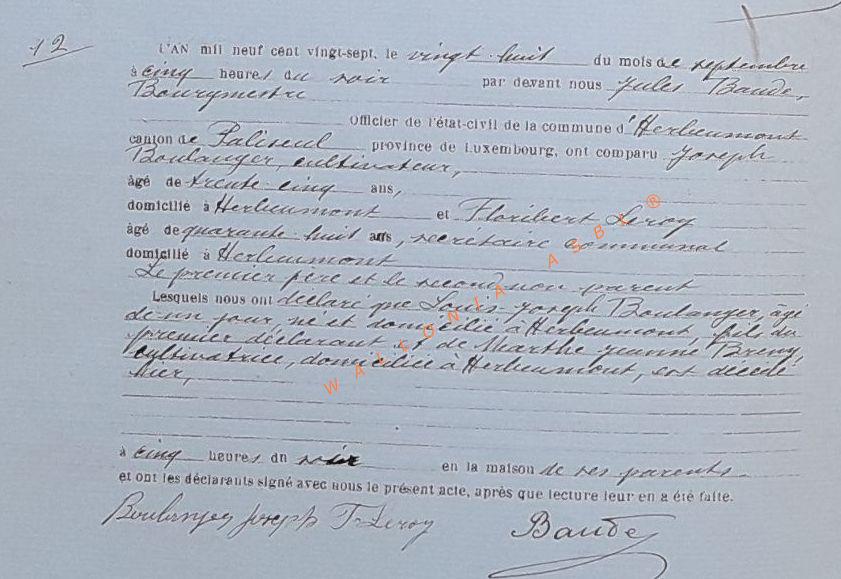 12
L'AN mil neuf cent vingt-sept, le vingt-huit du mois de septembre
à cinq heures du soir par devant nous Jules Baude,
Bourgmestre
Officier de l'état-civil de la commune d'Herbeumont
canton de Paliseul province de Luxembourg, ont comparu Joseph
Boulanger, cultivateur,
âgé de trente-cinq ans,
domicilié à Herbeumont et Floribert Leroy
âgé de quarante-huit ans, secrétaire communal
domicilié à Herbeumont
Le premier père et le second non parent
Lesquels nous ont déclaré que Louis-Joseph Boulanger, âgé
de un jour, né et domicilié à Herbeumont, fils du
premier déclarant et de Marthe Jeanne Breny,
cultivatrice, domiciliée à Herbeumont, est décédé
hier,
à cinq heures du soir en la maison de ses parents
et ont les déclarants signé avec nous le présent acte, après que lecture leur en a été faite.
Boulanger Joseph F. Leroy Baude
WALLONIA ASBL ®